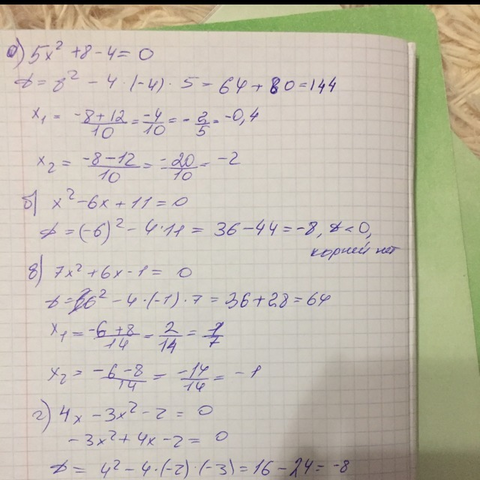 а) 5x² + 8 - 4 = 0
D = 8² - 4 · (-4) · 5 = 64 + 80 = 144
x₁ = -8+12/10 = -4/10 = -2/5 = -0,4
x₂ = -8-12/10 = -20/10 = -2
б) x² - 6x + 11 = 0
D = (-6)² - 4·11 = 36 - 44 = -8, D < 0,
корней нет
в) 7x² + 6x - 1 = 0
D = 6² - 4 · (-1) · 7 = 36 + 28 = 64
x₁ = -6+8/14 = 2/14 = 1/7
x₂ = -6-8/14 = -14/14 = -1
г) 4x - 3x² - 2 = 0
-3x² + 4x - 2 = 0
D = 4² - 4 · (-2) · (-3) = 16 - 24 = -8